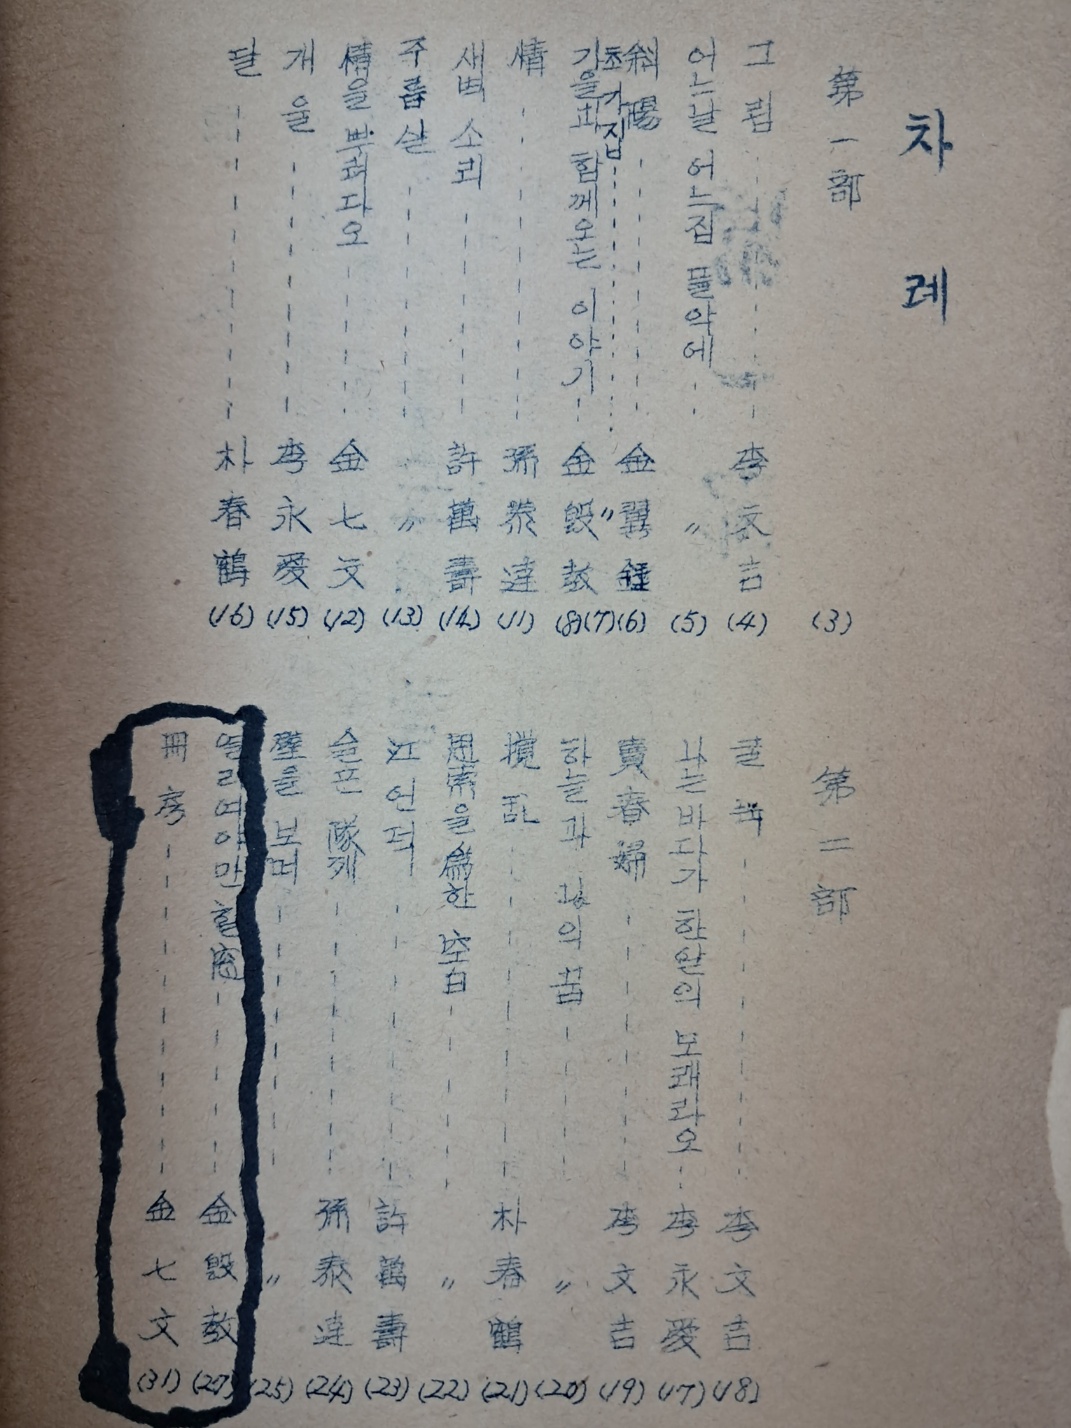 차례
第一部 (3)
그림 李文吉 (4)
어느날 어느집 뜰악에 〃 (5)
斜陽 金翼鍾 (6)
초가집 〃 (7)
가을과 함께오는 이야기 金毁教 (8)
情 孫泰達 (11)
새벽소리 許萬壽 (14)
주름살 〃 (13)
情을 뿌려다오 金七文 (12)
개울 李永愛 (15)
달 朴春鶴 (16)
第二部
굴뚝 李文吉 (18)
나는 바다가 한알의 모래라오 李永愛 (17)
賣春婦 李文吉 (19)
하늘과 나의 꿈 〃 (20)
攪乱 朴春鶴 (21)
思索을 爲한 空白 〃 (22)
江언덕 許萬壽 (23)
슬픈 隊列 孫泰達 (24)
壁을 보며 〃 (25)
열려야만 할 窓 金毁教 (27)
冊房 金七文 (31)